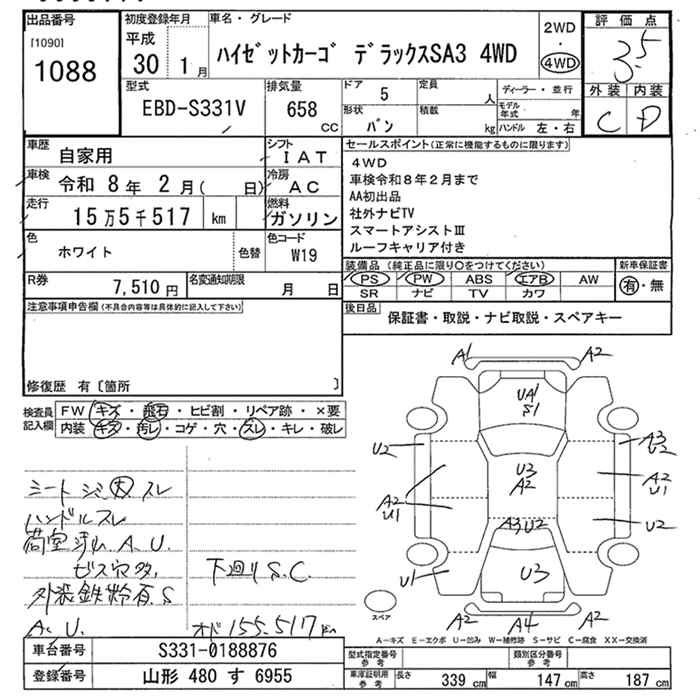 出品番号
[1090]
1088
初度登録年月
平成
30 1月
車名・グレード
ハイゼットカーゴ デラックスSA3 4WD
2WD
・
4WD
評価点
3.5
外装 内装
C D
型式
EBD-S331V
排気量
658
cc
ドア 5
定員
人
形状
バン
積載
kg
ディーラー・並行
モデル年式 年
ハンドル 左・右
車歴
自家用
シフト
IAT
車検
令和 8年 2月( 日)
冷房
AC
走行
15万5千517 km
燃料
ガソリン
色
ホワイト
色替
色コード
W19
R券
7,510円
名変通知期限
月 日
セールスポイント(正常に機能するものに限ります)
4WD
車検令和8年2月まで
AA初出品
社外ナビTV
スマートアシストⅢ
ルーフキャリア付き
装備品 (純正品に限り○をつけてください)
新車保証書
PS PW ABS エアB AW
SR ナビ TV カワ
有・無
後日品
保証書・取説・ナビ取説・スペアキー
注意事項申告欄(不具合内容等は具体的に記入して下さい)
修復歴 有〔箇所 〕
検査員記入欄
FW キズ・飛石・ヒビ割・リペア跡・×要
内装 キズ・汚レ・コゲ・穴・スレ・キレ・破レ
シート シミ 大 スレ
ハンドルスレ
荷室 汚れ A.U.
ビス穴多
外装鉄粉有.S
A.U.
下廻りS.C.
オド 155,517km
A1 A2
UA1
S1
U2
A3
U2
U3
A2
A2
U1
A2
U1
A3 U2
U2
U1
U3
A2 A4 A2
スペア
A-キズ E-エクボ U-凹み W-補修跡 S-サビ C-腐食 XX-交換済
車台番号
S331-0188876
登録番号
山形 480 す 6955
型式指定番号
参考
類別区分番号
参考
車庫証明用
参考
長さ 339 cm
幅 147 cm
高さ 187 cm